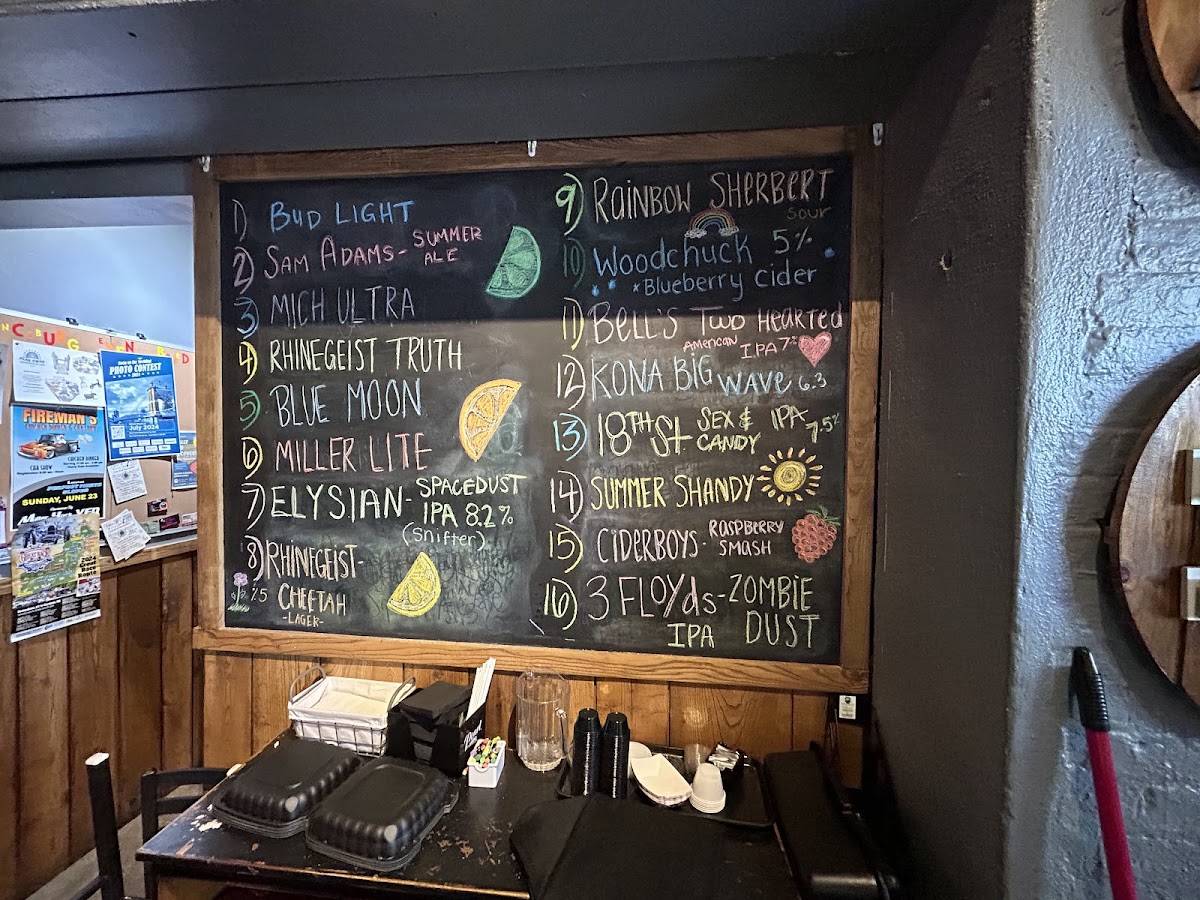 1) BUD LIGHT
2) SAM ADAMS- SUMMER
ALE
3) MICH ULTRA
4) RHINEGEIST TRUTH
5) BLUE MOON
6) MILLER LITE
7) ELYSIAN- SPACEDUST
IPA 8.2%
(Snifter)
8) RHINEGEIST-
CHEETAH
-LAGER-
9) RAINBOW SHERBERT
SOUR
10) Woodchuck 5%
*Blueberry Cider
11) BELL'S TWO HEARTED
AMERICAN IPA 7%
12) KONA BIG WAVE 6.3
13) 18TH St SEX & CANDY IPA 7.5%
14) SUMMER SHANDY
15) CIDERBOYS- RASPBERRY
SMASH
16) 3 FLOYDS- ZOMBIE
IPA DUST
PHOTO CONTEST
July 2024
FIREMAN'S
CAR SHOW
SUNDAY, JUNE 23